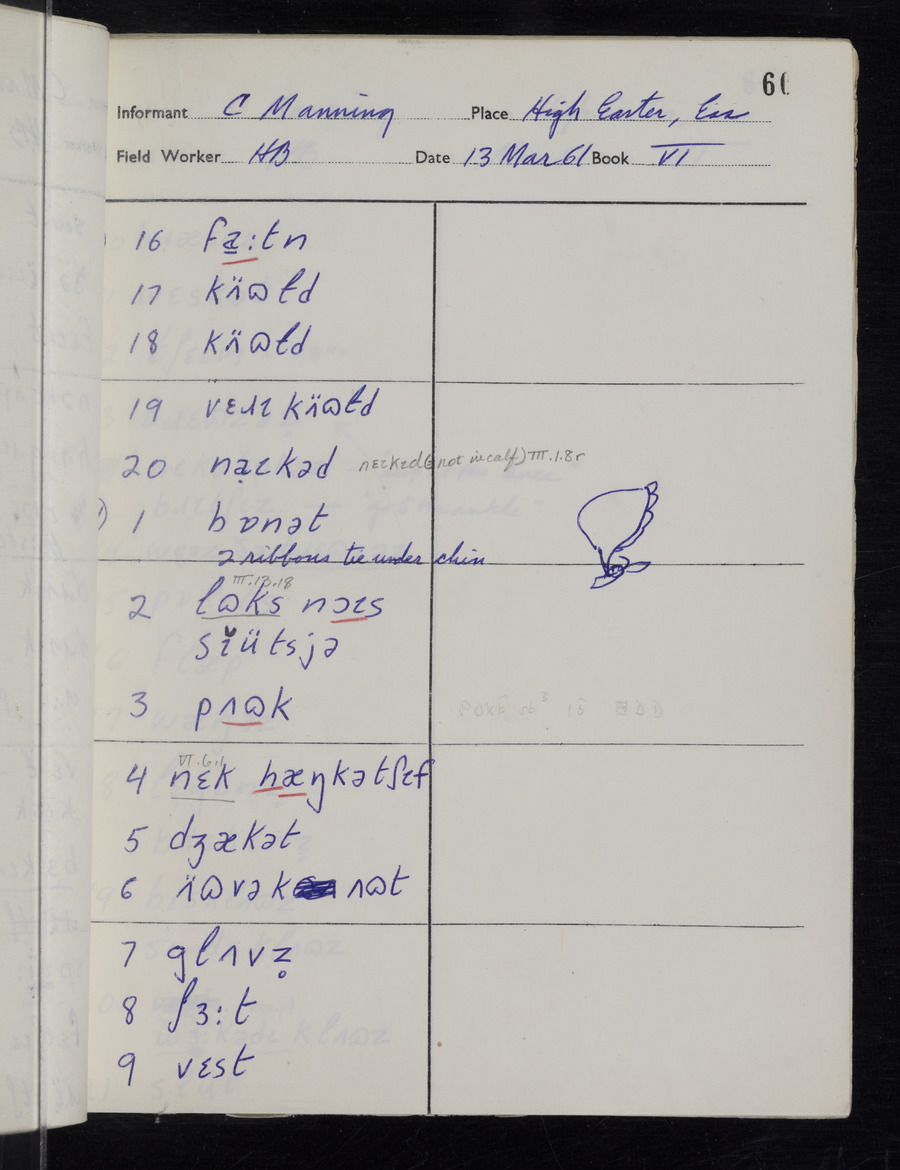 60
Informant C Manning Place High Easter, Ess
Field Worker HB Date 13 Mar 61 Book VI
16 fa̱:tn
17 kʌ̈ɷld
18 kʌ̈ɷld
19 vɛɹɪ kʌ̈ɷld
20 nạɪkəd nɛɪkɪd (not in calf) III.1.8r
1 bɒnət
2 ribbons tie under chin
III.13.18
2 lɷks nɔɪs
sɪ̆ütsjə
3 pʌɷk
VI.6.1
4 nɛk hæŋkətʃɪf
5 dʒækət
6 ʌ̈ɷvək ʌɷt
7 glʌvẓ
8 ʃɜ:t
9 vɛst